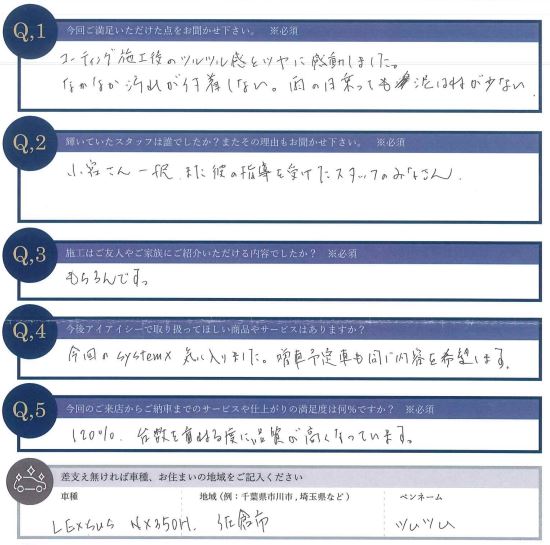 Q,1 今回ご満足いただけた点をお聞かせ下さい。 ※必須
コーティング施工後のツルツル感とツヤに感動しました。
なかなか汚れが付着しない。雨の日乗っても泥はねが少ない
Q,2 輝いていたスタッフは誰でしたか？またその理由もお聞かせ下さい。 ※必須
小宮さん一択、また彼の指導を受けたスタッフのみなさん、
Q,3 施工はご友人やご家族にご紹介いただける内容でしたか？ ※必須
もちろんです。
Q,4 今後アイアイシーで取り扱ってほしい商品やサービスはありますか？
今回の systemX 気に入りました。増車予定車も同じ内容を希望します。
Q,5 今回のご来店からご納車までのサービスや仕上がりの満足度は何％ですか？ ※必須
120%. 台数を重ねる度に品質が高くなっています。
差支え無ければ車種、お住まいの地域をご記入ください
車種 地域（例：千葉県市川市，埼玉県など） ペンネーム
LExsus NX350H. 佐倉市 ツルツル